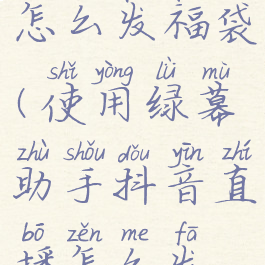 怎么发福袋
shǐ yòng lǜ mù
(使用绿幕
zhù shǒu dǒu yīn zhí
助手抖音直
bō zěn me fā
播怎么发